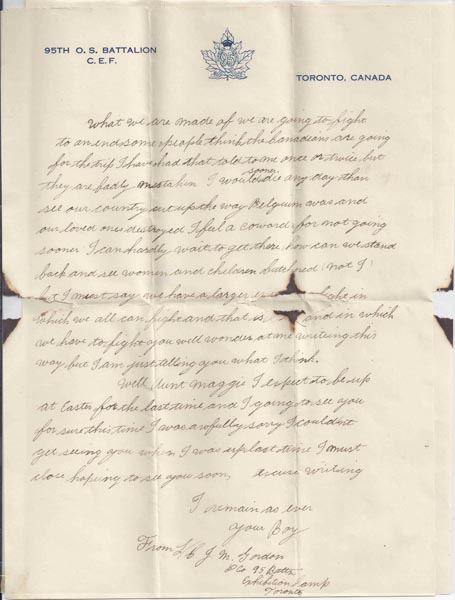 95TH O. S. BATTALION
C. E. F.
TORONTO, CANADA
What we are made of we are going to fight
to an end some people think the Canadians are going
for the trip I have had that told to me once or twice but
they are badly mistaken I would sooner die any day than
see our country cut up the way Belgium was and
our loved ones destroyed I feel a coward for not going
sooner I can hardly wait to get there, how can we stand
back and see women and children butchered (not I)
but I must say we have a larger fight in
which we all can fight and that is and in which
we have to fight you will wonder at me writing this
way but I am just telling you what I think.
Well Aunt Maggie I expect to be up
at Easter for the last time and I going to see you
for sure this time I was awfully sorry I couldn't
get seeing you when I was up last time I must
close hoping to see you soon, excuse writing
I remain as ever
Your Boy
From J. M. Gordon
Co 95 Batt
Exhibition Camp
Toronto